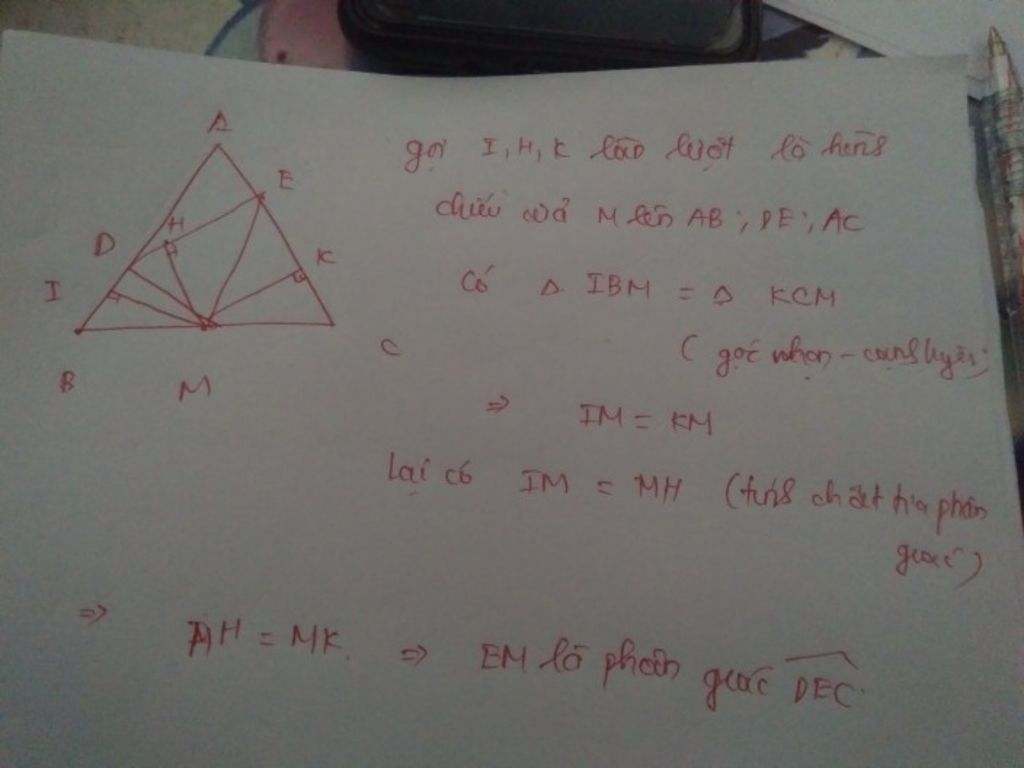 A
E
H
D
K
I
C
B
M
gọi I, H, K lần lượt là hình
chiếu của M lên AB ; DE ; AC
Có Δ IBM = Δ KCM
( góc nhọn - cạnh huyền)
⇒ IM = KM
Lại có IM = MH (tính chất tia phân
giác)
⇒ MH = MK. ⇒ EM là phân giác \widehat{DEC}.